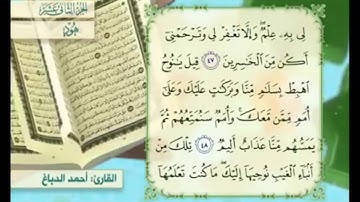 الجزء الثاني عشر
هود
لِى بِهِۦ عِلْمٌ وَإِلَّا تَغْفِرْ لِى وَتَرْحَمْنِىٓ
أَكُن مِّنَ ٱلْخَٰسِرِينَ ٤٧ قِيلَ يَٰنُوحُ
ٱهْبِطْ بِسَلَٰمٍ مِّنَّا وَبَرَكَٰتٍ عَلَيْكَ وَعَلَىٰٓ
أُمَمٍ مِّمَّن مَّعَكَ وَأُمَمٌ سَنُمَتِّعُهُمْ ثُمَّ
يَمَسُّهُم مِّنَّا عَذَابٌ أَلِيمٌ ٤٨ تِلْكَ مِنْ
أَنۢبَآءِ ٱلْغَيْبِ نُوحِيهَآ إِلَيْكَ مَا كُنتَ تَعْلَمُهَآ
القارئ: أحمد الدباغ